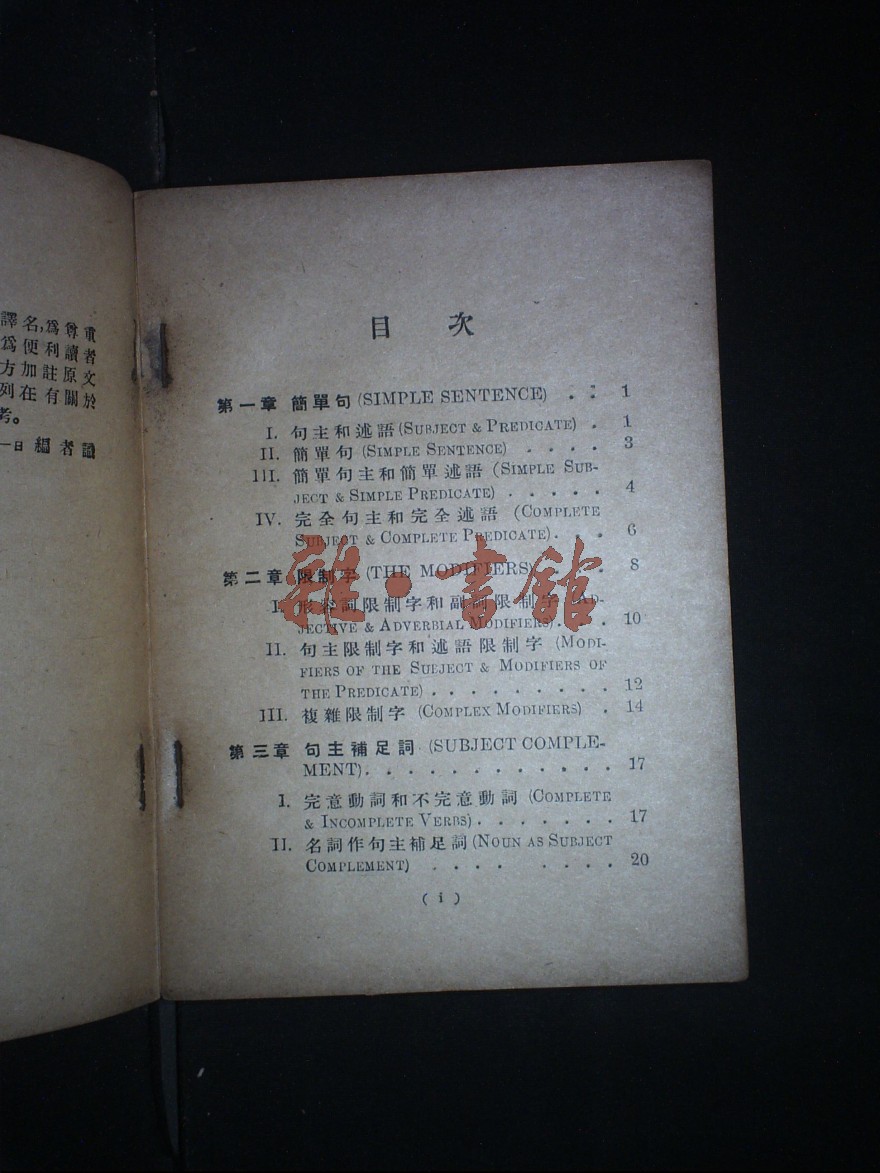 譯名,爲尊重
爲便利讀者
方加註原文
列在有關於
考。
一日 編者識
目次
第一章 簡單句 (SIMPLE SENTENCE) . . : 1
I. 句主和述語 (SUBJECT & PREDICATE) . 1
II. 簡單句 (SIMPLE SENTENCE) . . . . 3
III. 簡單句主和簡單述語 (SIMPLE SUB-
JECT & SIMPLE PREDICATE) . . . . . 4
IV. 完全句主和完全述語 (COMPLETE
SUBJECT & COMPLETE PREDICATE). . . 6
第二章 限制字 (THE MODIFIERS) . . 8
I. 形容詞限制字和副詞限制字 (AD-
JECTIVE & ADVERBIAL MODIFIERS). . . 10
II. 句主限制字和述語限制字 (MODI-
FIERS OF THE SUBJECT & MODIFIERS OF
THE PREDICATE) . . . . . . . . . 12
III. 複雜限制字 (COMPLEX MODIFIERS) . 14
第三章 句主補足詞 (SUBJECT COMPLE-
MENT). . . . . . . . . . . . 17
I. 完意動詞和不完意動詞 (COMPLETE
& INCOMPLETE VERBS). . . . . . . 17
II. 名詞作句主補足詞 (NOUN AS SUBJECT
COMPLEMENT) . . . . . . . . 20
( i )
雜·書館